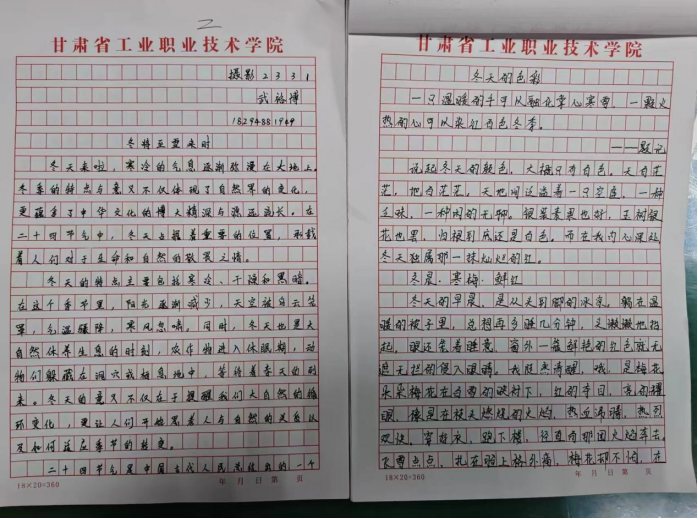 甘肃省工业职业技术学院
摄影2331
武裕博
18294881949
冬将至蛰来时
冬天来啦,寒冷的气息逐渐弥漫在大地上。
冬季的特点与意义不仅体现了自然界的变化,
更蕴含了中华文化的博大精深与源远流长。在
二十四节气中,冬天占据着重要的位置,承载
着人们对于生命和自然的敬畏之情。
冬天的特点主要包括寒冷、干燥和黑暗。
在这个季节里,阳光逐渐减少,天空被白云笼
罩,气温骤降,寒风忽啸。同时,冬天也是大
自然休养生息的时刻,农作物进入休眠期,动
物们躲藏在洞穴或栖息地中,等待着春天的到
来。冬天的意义不仅在于提醒我们大自然的循
环变化,更让人们开始思考人与自然的关系以
及如何适应季节的转变。
二十四节气是中国古代人民总结出的一个
18×20=360
年 月 日 第 页
甘肃省工业职业技术学院
冬天的色彩
一只温暖的手可以融化掌心寒雪,一颗火
热的心可以染红白色冬季。
——题记
说起冬天的颜色,大概只有白色。天白茫
茫,地白茫茫,天地间还造着一只空虚,一种
乏味,一种闲的无聊。银装素裹也好,玉树银
花也罢,归根到底还是白色。而在我内心深处
冬天独属那一抹灿烂的红。
冬晨·寒梅·鲜红
冬天的早晨,是从头到脚的冰凉。躺在温
暖的被子里,总想再多睡几分钟,又懒懒地抬
起,眼还带着睡意,窗外一抹鲜艳的红色疏无
遮无拦的侵入眼睛。我恍然清醒。哦,是梅花
朵朵梅花在白雪的映衬下,红的夺目,亮的耀
眼,像是在枝头燃烧的火焰,热血沸腾,热烈
欢快。穿好衣,跑下楼,径直向那团火焰奔去。
飞雪点点,扎在羽上格外痛,梅花却不怕,在
18×20=360
年 月 日 第 页